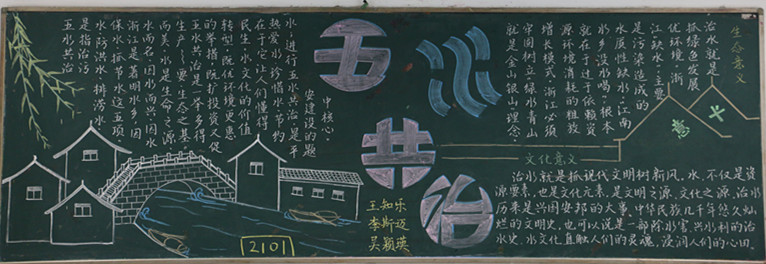 五水共治
五水共治
是指治污
水、防洪水、排涝水、
保供水、抓节水这五项。
浙江是著明水乡，因
水而名、因水而兴，因水
而美，水是生命之源、
生产之要、生态之基。
五水共治是一举多得
的举措，既扩投资又促
转型，既优环境更惠
民生，水文化的价值
在于它让人们懂得
热爱水、珍惜水、节约
水，进行五水共治是平
安建设的题
中核心。
生态意义
治水就是
抓绿色发展
优环境，浙
江缺水，主要
是污染造成的
水质性缺水，江南
水乡没水喝，根本
在于过于依赖资
源环境消耗的粗放
增长模式，浙江必须
牢固树立绿水青山
就是金山银山，理念。
意义
文化意义
治水就是抓现代文明树新风，水，不仅是资
源要素，也是文化元素，是文明之源，文化之源，治水
历来是兴国安邦的大事，中华民族几千年悠久灿
烂的文明史，也可以说是一部除水害，兴水利的治
水史，水文化直触人们的灵魂，浸润人们的心田。
王知乐
李斯迈
吴颖瑛
2101